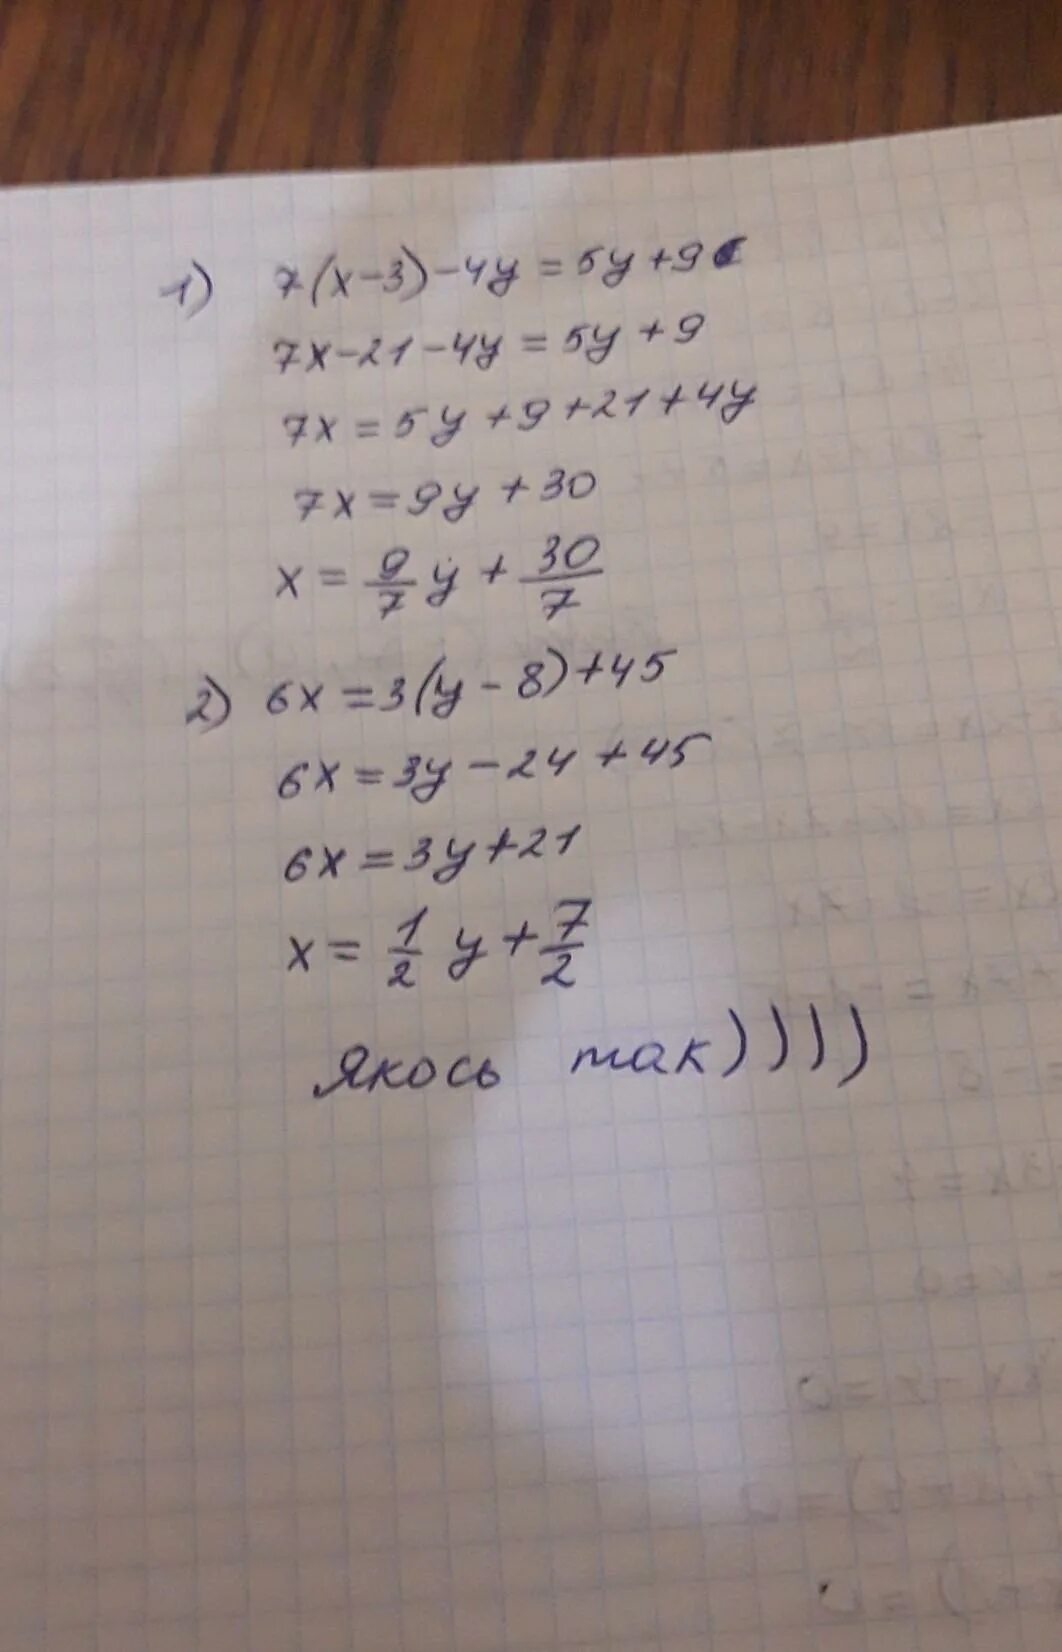 1) 7(x-3)-4y=5y+9
7x-21-4y=5y+9
7x=5y+9+21+4y
7x=9y+30
x=9/7 y+30/7
2) 6x=3(y-8)+45
6x=3y-24+45
6x=3y+21
x=1/2 y+7/2
Якось так))))